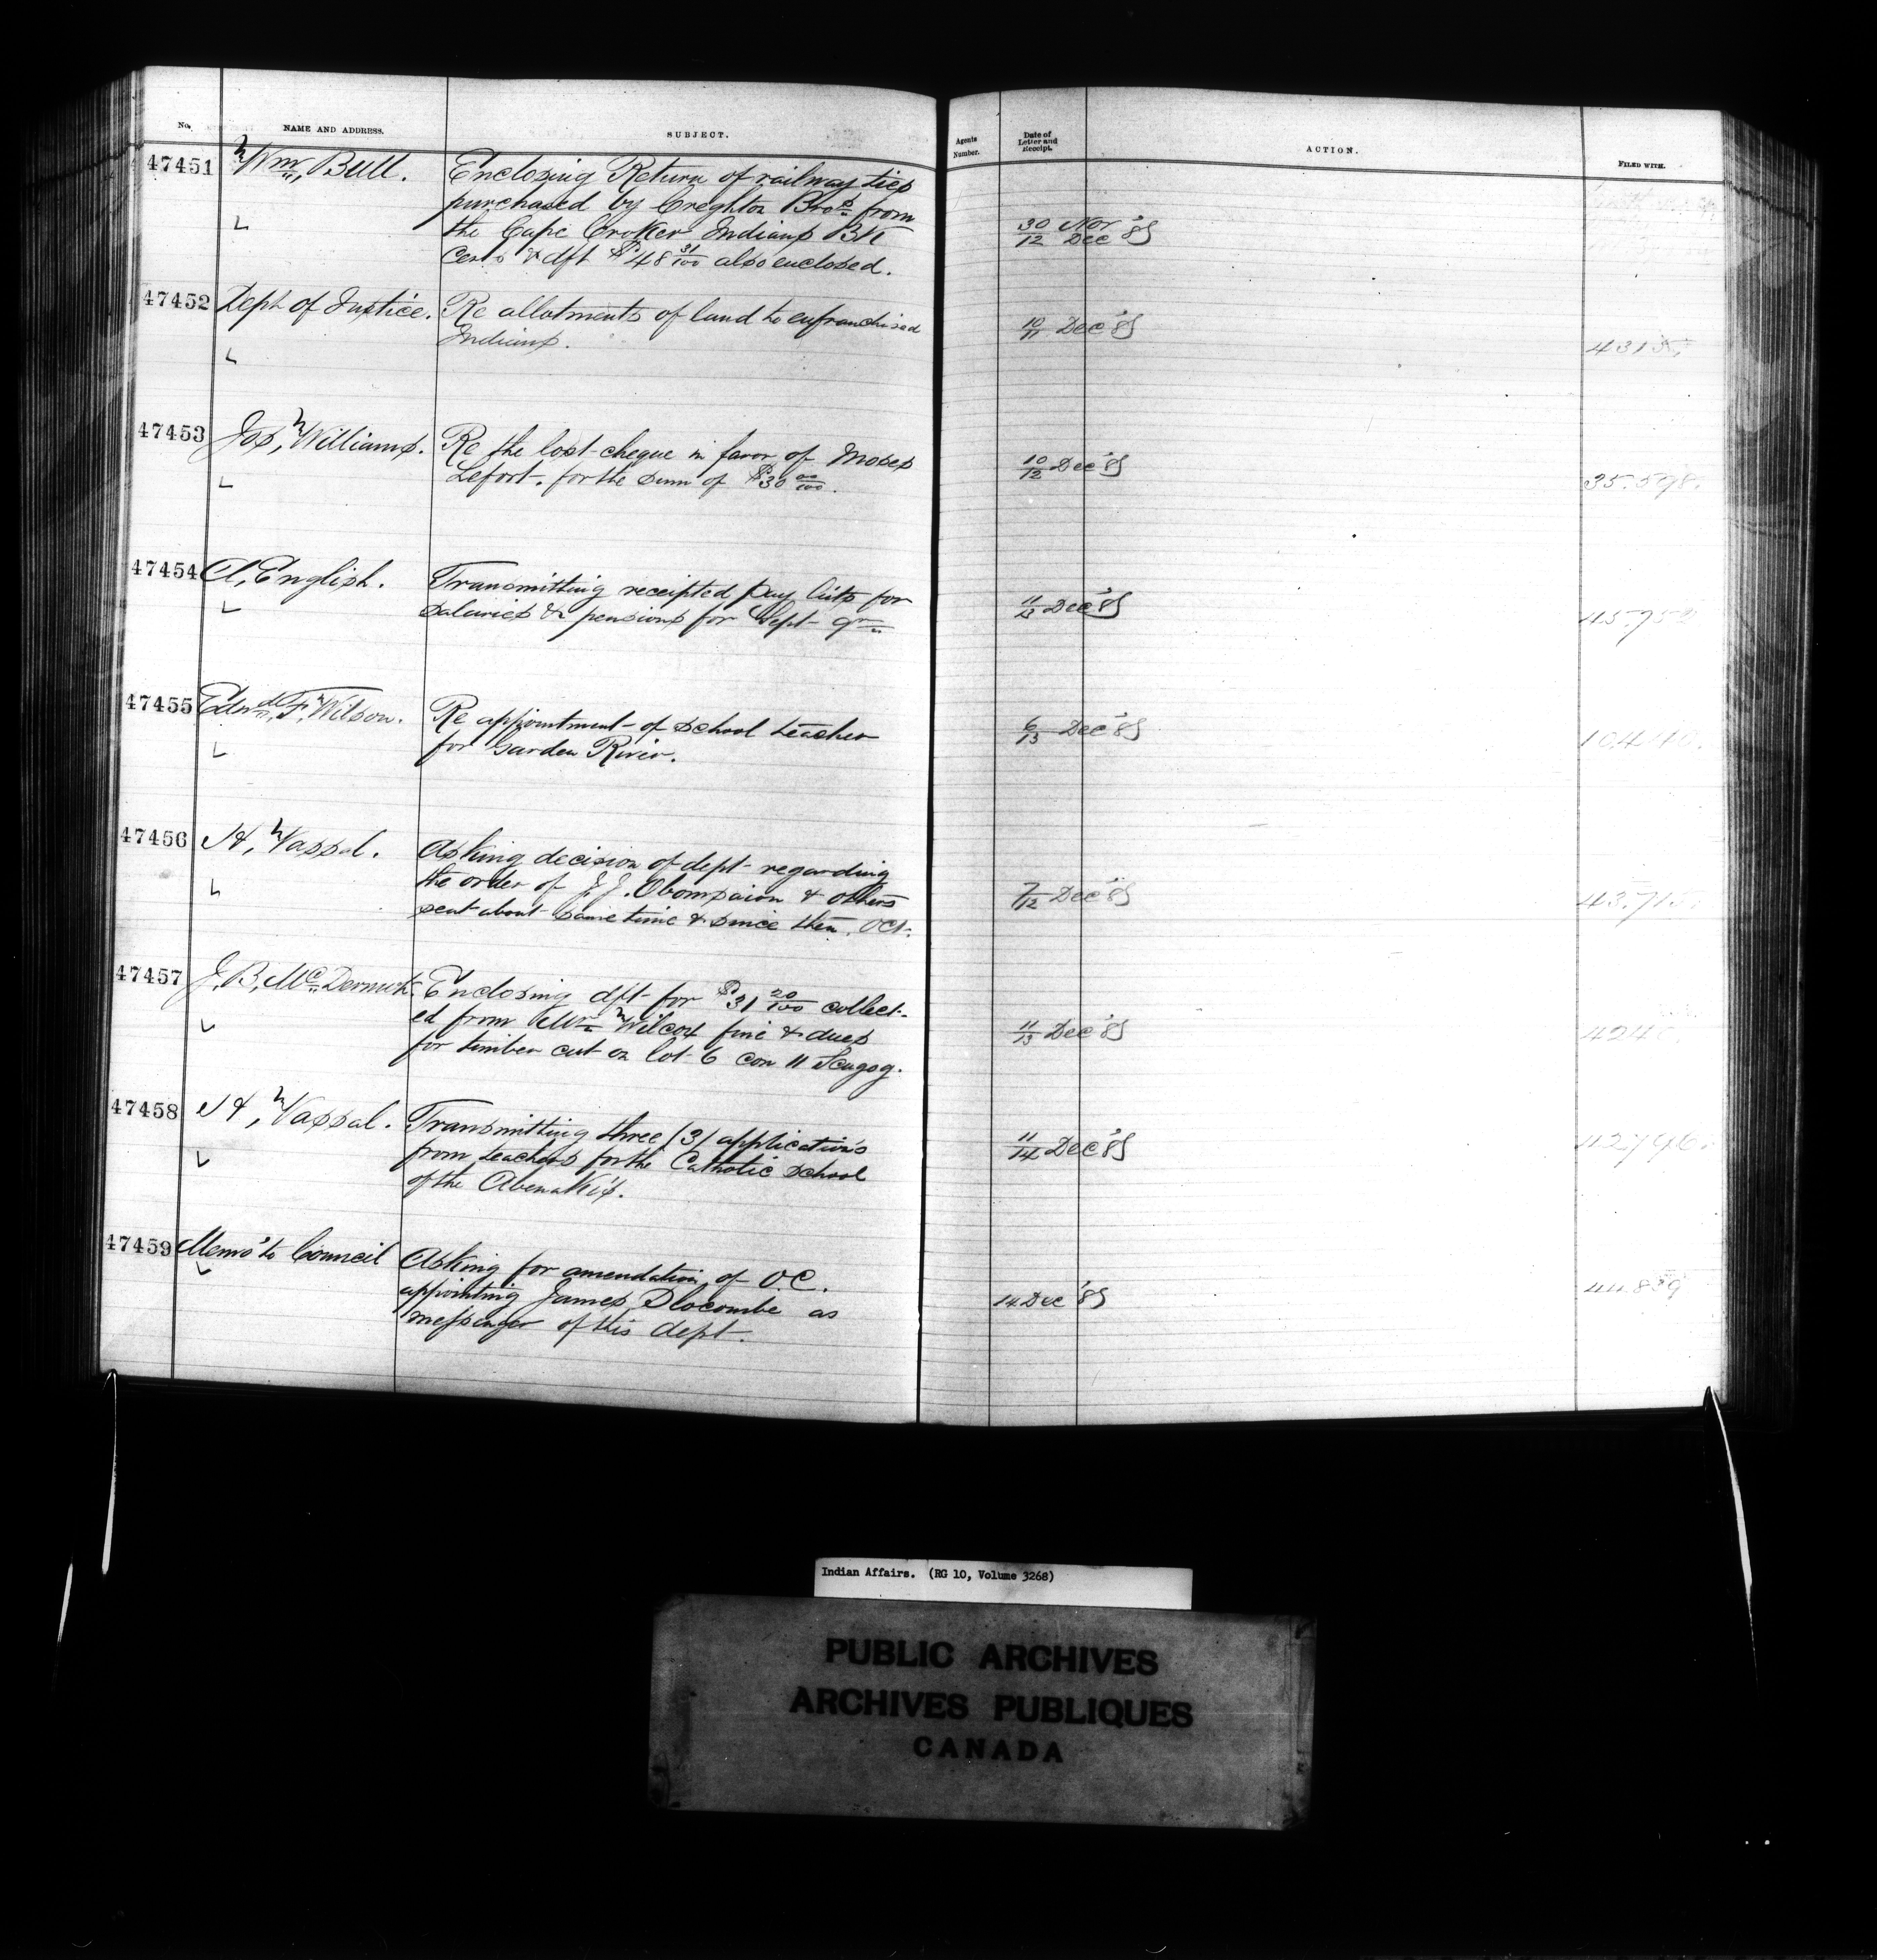 No. NAME AND ADDRESS. SUBJECT. Agents Number. Date of Letter and Receipt. ACTION. FILED WITH.
47451 Wm, Bull. Enclosing Return of railway ties
purchased by Creghton Bros from
the Cape Croker Indians BK
Certs & dft $48 31/100 also enclosed. 30/12 Nov Dec '85
47452 Dept of Justice. Re allotments of land to enfranchised
Indians. 10/11 Dec '85 4315.
47453 Jos, Williams. Re the lost cheque in favor of Moses
Lefort. for the sum of $30 00/100. 10/12 Dec '85 35.598.
47454 A, English. Transmitting receipted pay lists for
salaries & pensions for Sept qr 11/13 Dec '85 45.952
47455 Edwd, F, Wilson. Re appointment of school teacher
for Garden River. 6/13 Dec '85
47456 H, Vassal. Asking decision of dept regarding
the order of J J. Obomsaion & others
sent about same time & since then. Oct. 7/12 Dec '85 43.715.
47457 J, B, McDermot. Enclosing dft for $31 20/100 collect-
ed from Wm Wilcox fine & dues
for timber cut on lot 6 con 11 Scugog. 11/13 Dec '85
47458 H, Vassal. Transmitting three (3) applications
from teachers for the Catholic school
of the Abenakis. 11/14 Dec '85
47459 Memo' to Council Asking for amendation, of O.C.
appointing James Slocombe as
messenger of this dept. 14 Dec '85 44.839
Indian Affairs. (RG 10, Volume 3268)
PUBLIC ARCHIVES
ARCHIVES PUBLIQUES
CANADA